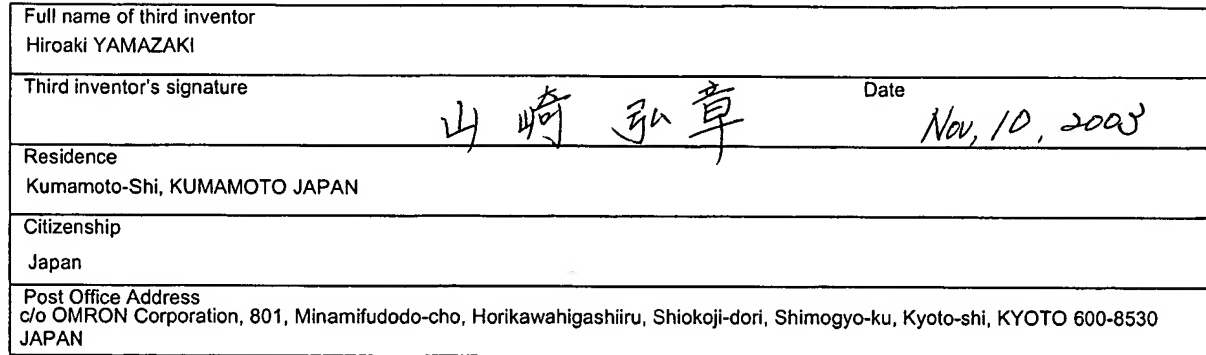 Full name of third inventor
Hiroaki YAMAZAKI
Third inventor's signature
Date
山崎 弘章
Nov, 10, 2003
Residence
Kumamoto-Shi, KUMAMOTO JAPAN
Citizenship
Japan
Post Office Address
c/o OMRON Corporation, 801, Minamifudodo-cho, Horikawahigashiiru, Shiokoji-dori, Shimogyo-ku, Kyoto-shi, KYOTO 600-8530
JAPAN